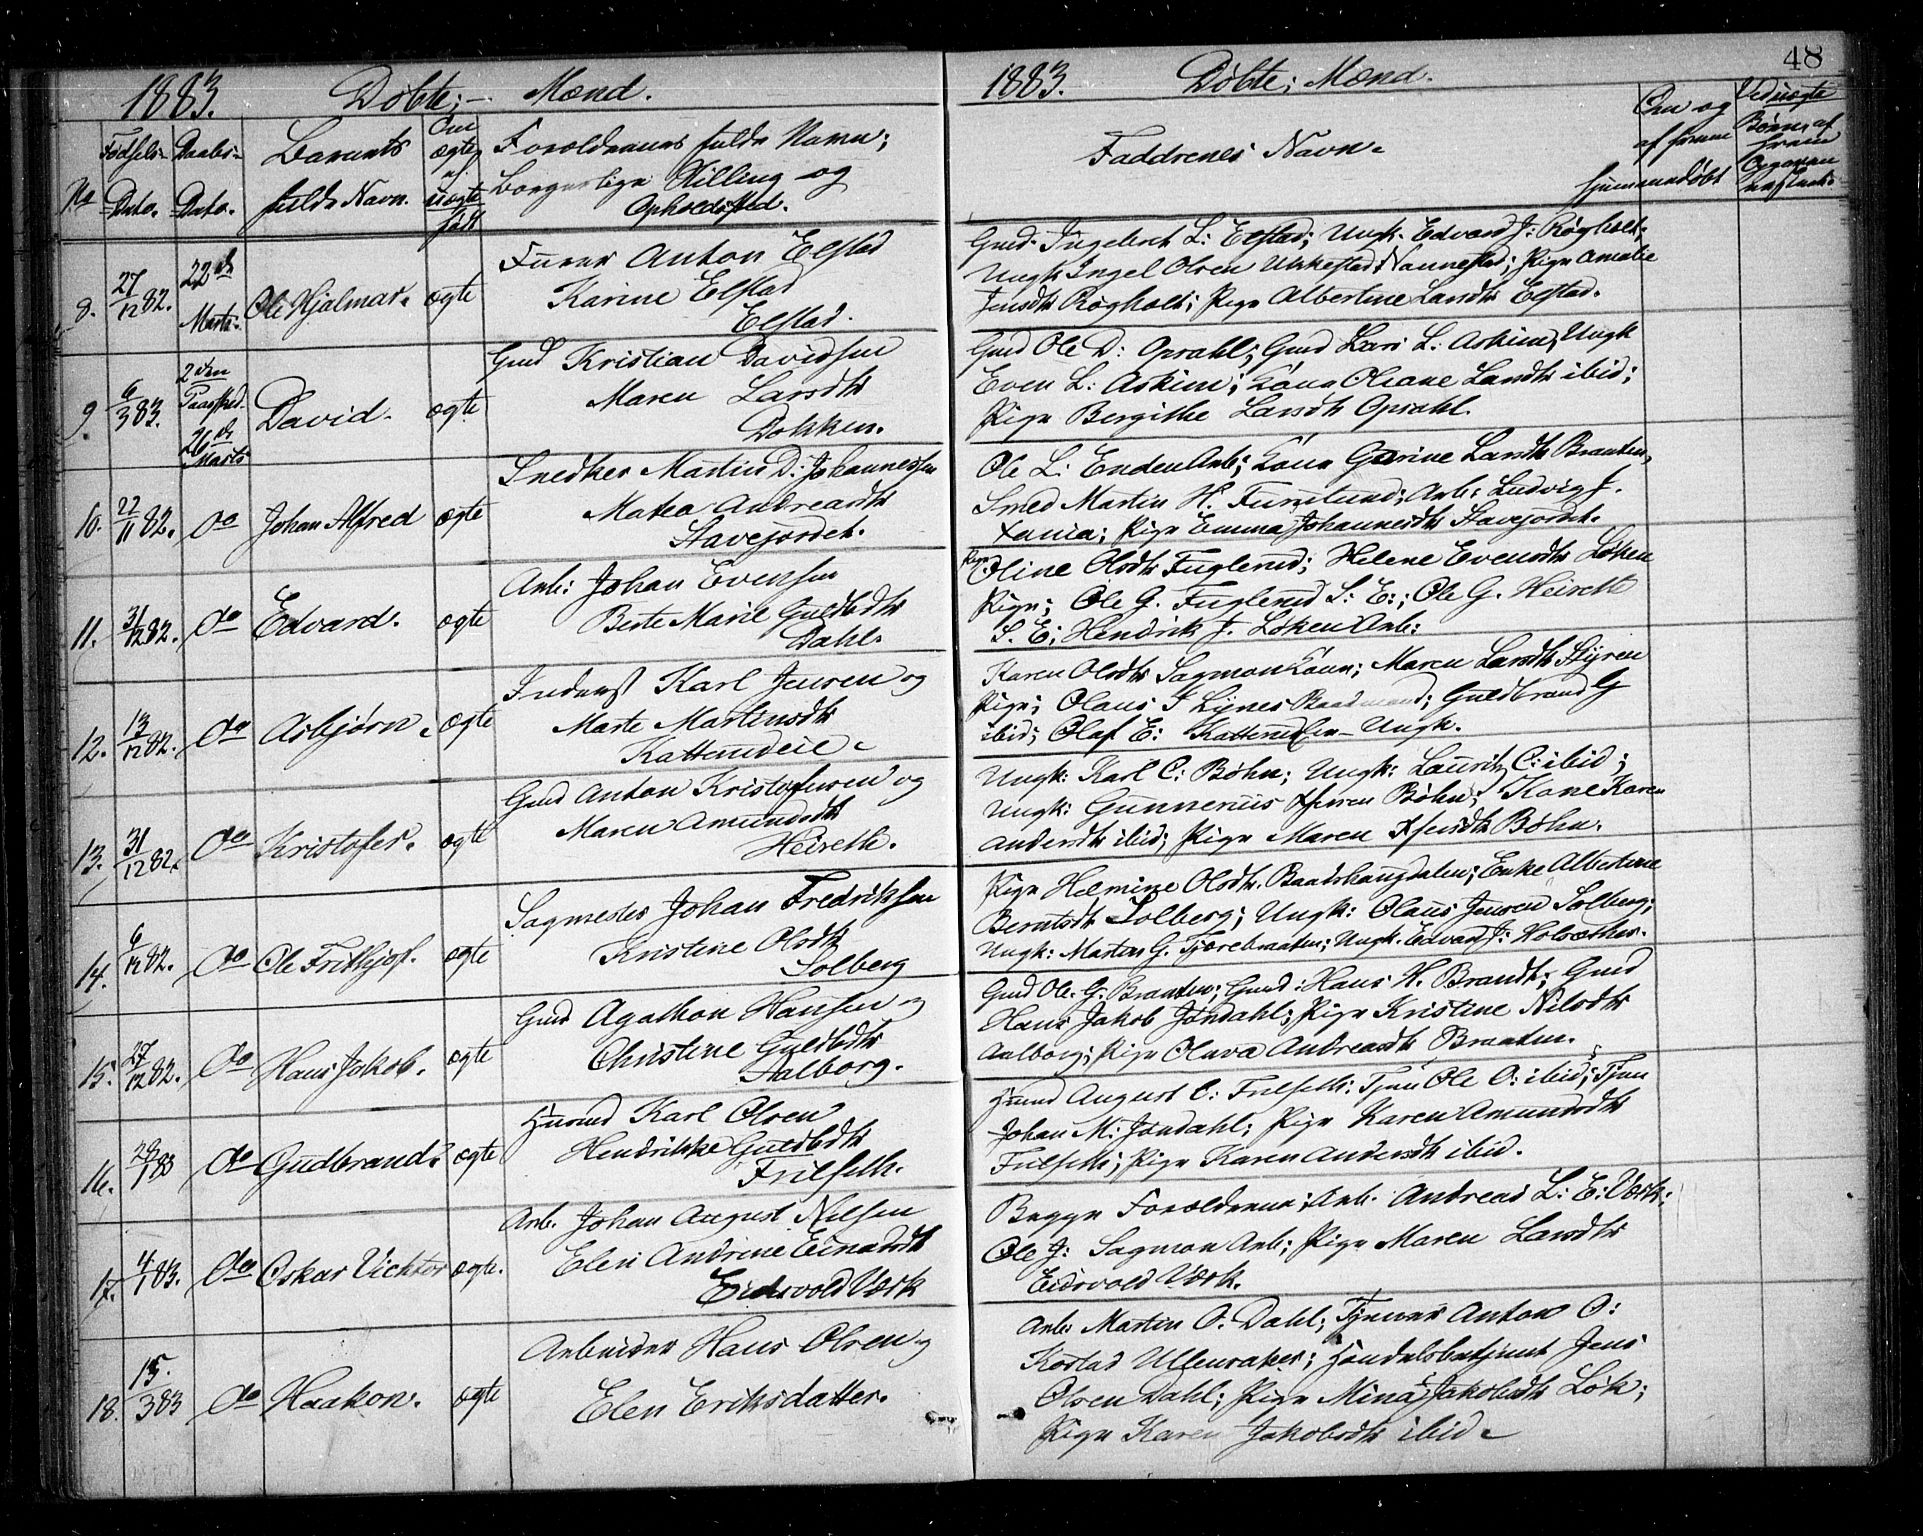 48
1883. Døbte; – Mænd.
1883. Døbte; Mænd.
No
Fødsels-
Dato.
Daabs-
Dato.
Barnets
fulde Navn.
Om
ægte
el.
uægte
født
Forældrenes fulde Navn;
borgerlige Stilling og
Opholdssted.
Faddrenes Navn.
Om og
af hvem
hjemmedøbt
Ved uægte
Børn, af
hvem
Opgaven
8. 27/12 82. 22de Marts. Ole Hjalmar. ægte
Furer Anton Elstad
Karine Elstad
Elstad.
Gmd. Ingebret L: Elstad; Ungk. Edvard J: Røgholt;
Ungk Ingel Olsen Nannestad; Pige Amalie
Jensdtr Røgholt; Pige Albertine Larsdtr Elstad.
9. 6/3 83. 2den Paasked. 26de Marts David. ægte
Gmd Kristian Davidsen
Maren Larsdtr
Dokken.
Gmd Ole D: Opsahl; Gmd Lars L. Askim; Ungk
Even L: Askim; Kone Oleane Larsdtr ibid;
Pige Bergithe Larsdtr Opsahl.
10. 22/11 82. do Johan Alfred ægte
Snedker Martin D: Johannessen
Mathea Andreasdtr
Stavejordet.
Ole L: Enden Arb; Kone Gorine Larsdtr Braaten,
Smed Martin H. Furulund; Arb: Ludvig J.
Xania; Pige Emma Johannesdtr Stavejordet.
11. 31/12 82. do Edvard. ægte
Arb: Johan Evensen
Berte Marie Guldbdtr
Dahl.
Pige Oline Olsdtr Fuglerud; Helene Evensdtr Løken
Pige; Ole G. Fuglerud S: E:; Ole G. Heireth
S. E; Hendrik J. Løken Arb:
12. 13/12 82. do Asbjørn. ægte
Inderst Karl Jensen og
Marte Martinsdtr
Katterudeie.
Karen Olsdtr Sagmon Kone; Maren Larsdtr Styren
Pige; Olaus S Lynes Baadmand; Guldbrand G
ibid; Olaf E: Katterudeie – Ungk.
13. 31/12 82. do Kristofer. ægte
Gmd Anton Kristofersen og
Maren Amundsdtr
Heireth.
Ungk: Karl C: Bøhn; Ungk: Lauritz C: ibid;
Ungk: Gunnerius Xfersen Bøhn; Kone Karen
Andersdtr ibid; Pige Maren Xfersdtr Bøhn.
14. 6/12 82. do Ole Frithjof. ægte
Sagmester Johan Fredriksen
Kristine Olsdtr
Solberg
Pige Helmine Olsdtr. Baadshaugdalen; Enke Albertine
Berntsdtr Solberg; Ungk: Olaus Jensen Solberg;
Ungk: Martin G. Tjærebraaten; Ungk. Edvard J: Holsæther.
15. 27/12 82. do Hans Jakob. ægte
Gmd Agathon Hansen og
Christine Guldbdtr
Aalborg.
Gmd Ole. G. Braaten; Gmd: Hans H. Brandt; Gmd
Hans Jakob Jøndahl; Pige Kristine Nilsdtr
Aalborg; Pige Olava Andreasdtr Braaten.
16. 28/1 83 do Gudbrand. ægte
Husmd Karl Olsen
Hendrikke Guldbdtr
Frilseth.
Husmd August C: Frilseth; Tjen Ole O: ibid; Tjen
Johan M: Jøndahl; Pige Karen Amundsdtr
Frilseth; Pige Karen Andersdtr ibid.
17. 4/1 83. do Oskar Vichtor ægte.
Arb. Johan August Nilsen
Elen Andrine Einarsdtr
Eidsvold Værk
Begge Forældrene; Arb. Andreas L: E: Værk.
Ole J: Sagmon Arb; Pige Maren Larsdtr
Eidsvold Værk.
18. 15./3 83 do Haakon. ægte
Arbeider Hans Olsen og
Elen Eriksdatter.
Arb. Martin O. Dahl; Tjener Anton O:
Kostad Ullensaker; Handelsbetjent Jens
Olsen Dahl; Pige Mina Jakobsdtr Løk;
Pige Karen Jakobsdtr ibid.